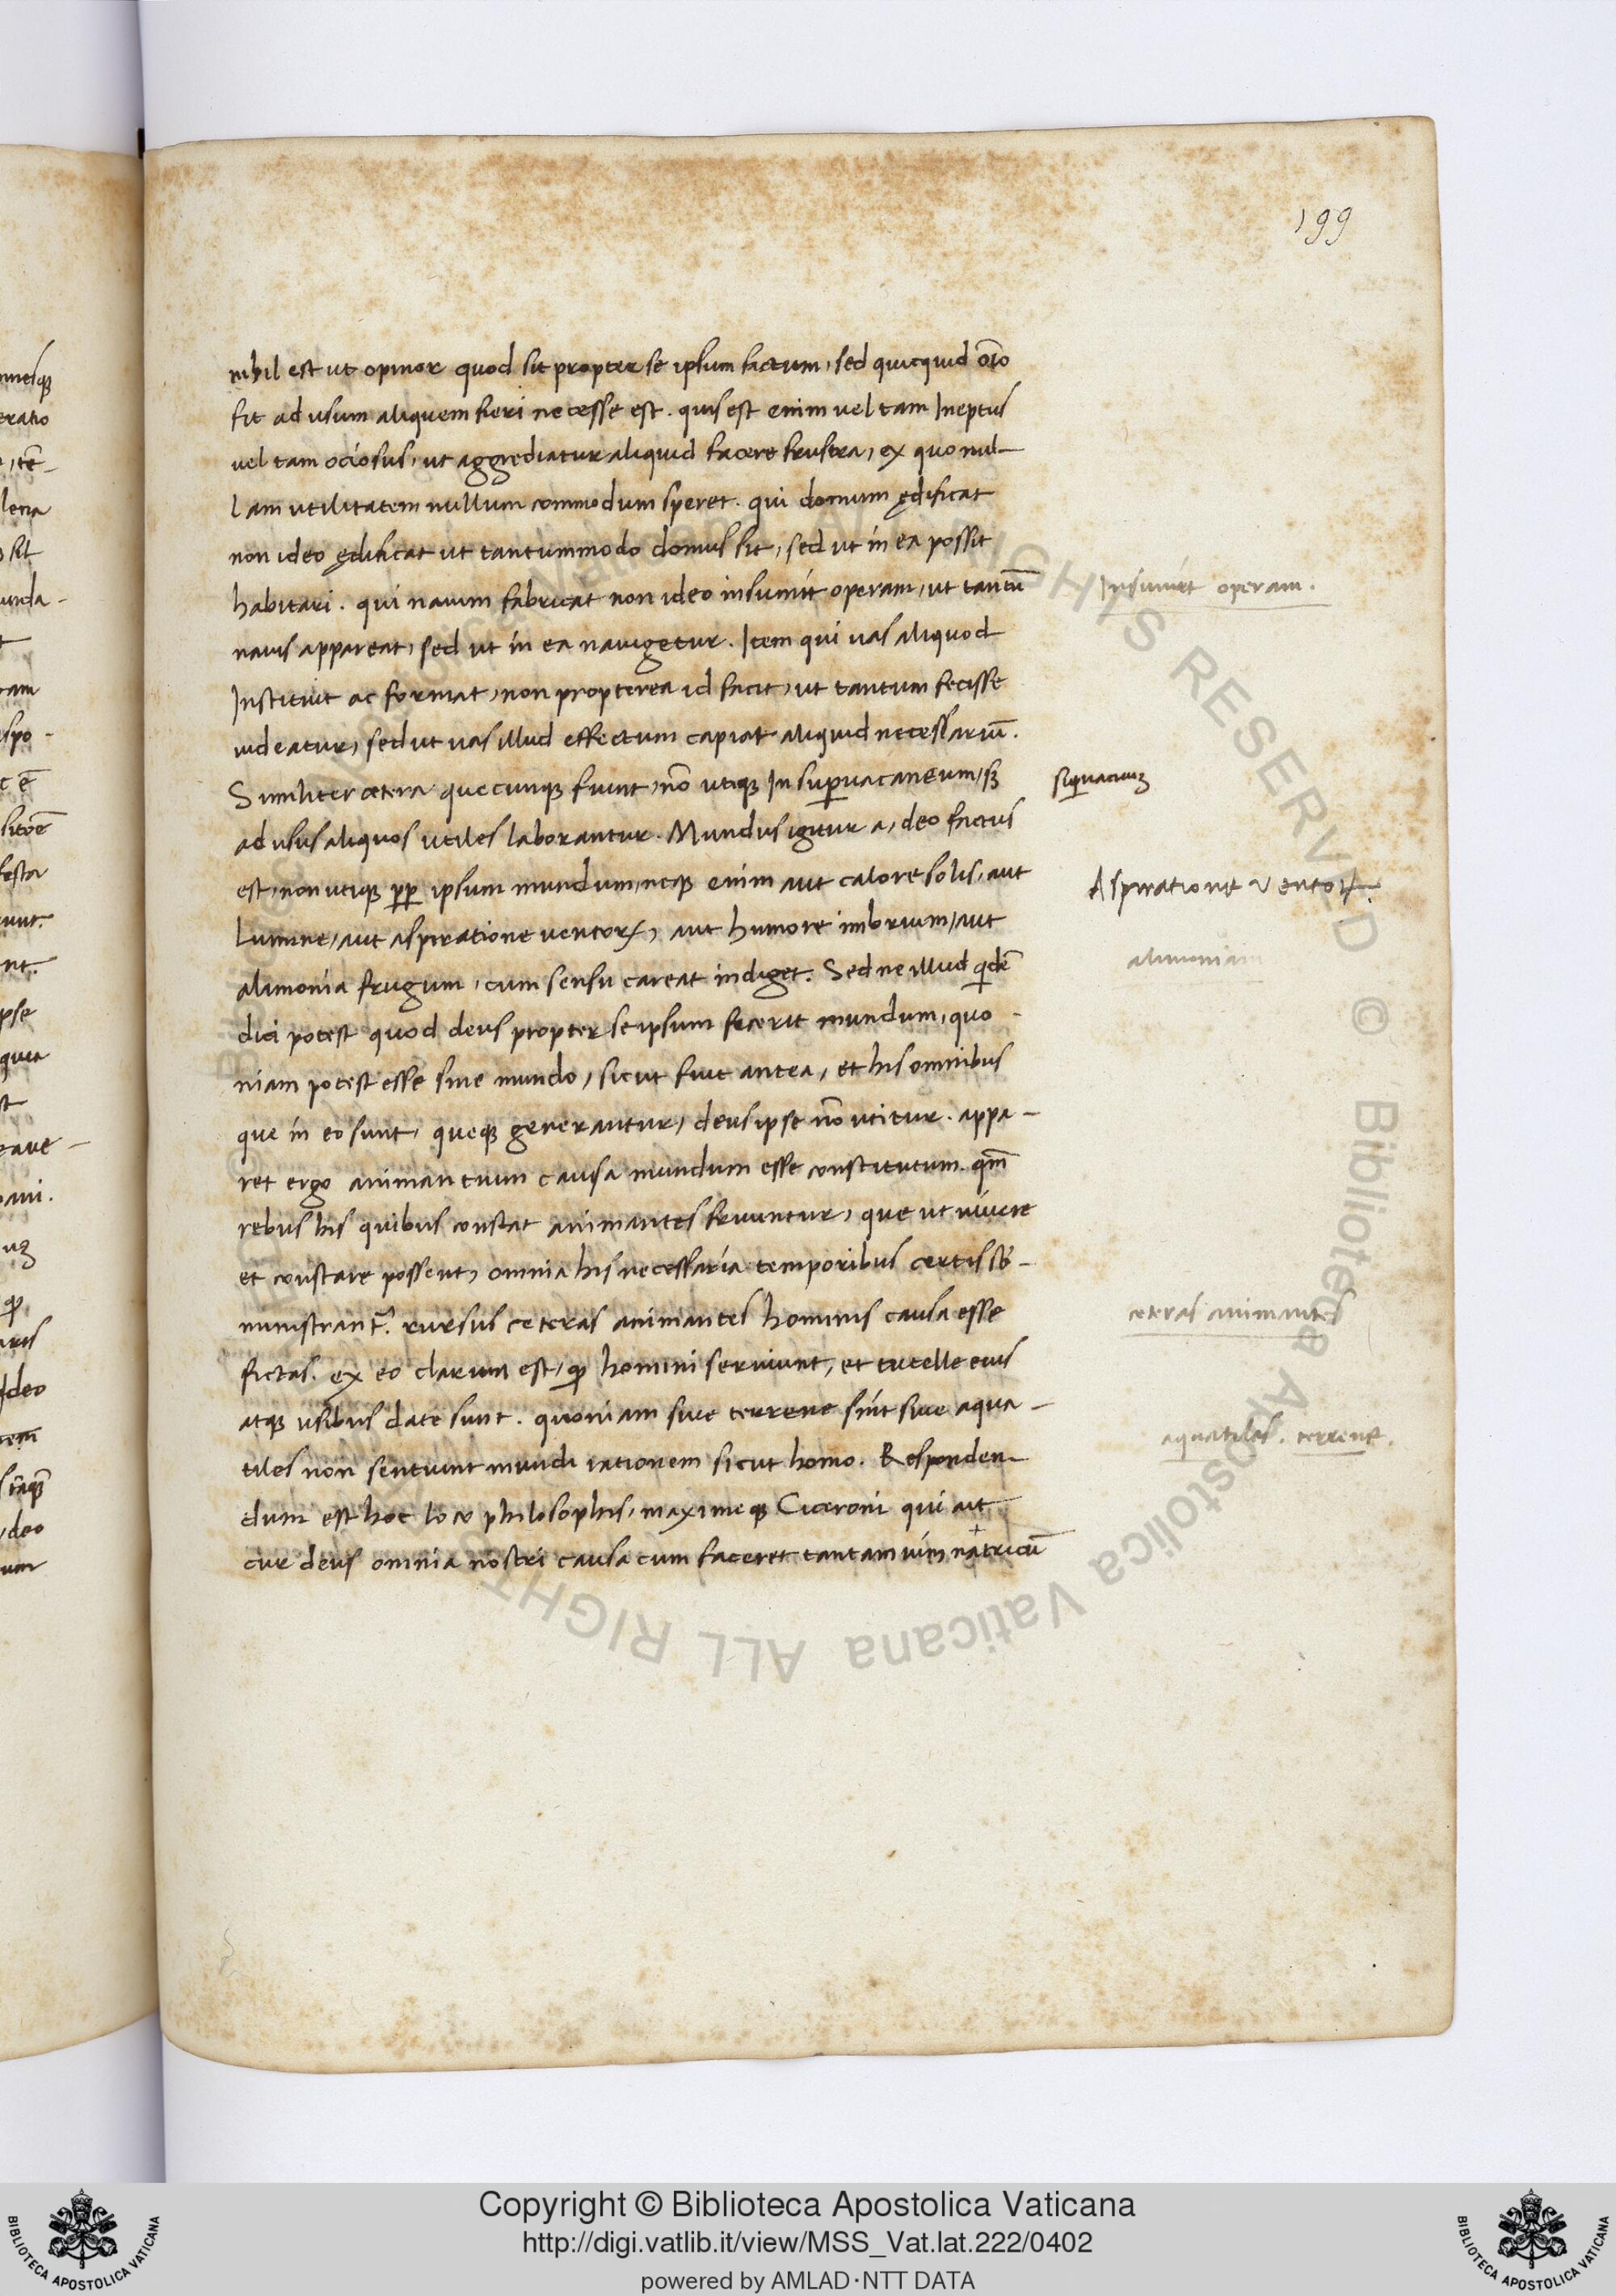 199
nihil est ut opinor quod sit propter se ipsum factum, sed quicquid oīo
fit ad usum aliquem fieri necesse est. quis est enim vel tam Ineptus
vel tam ociosus, ut aggrediatur aliquid facere frustra, ex quo nul-
lam utilitatem nullum commodum speret. qui domum ędificat
non ideo ędificat ut tantummodo domus sit, sed ut in ea possit
habitari. qui navim fabricat non ideo insumit operam, ut tantū
Insumit operam.
navis appareat, sed ut in ea navigetur. Item qui vas aliquod
Instituit ac format, non propterea id facit, ut tantum fecisse
videatur, sed ut vas illud effectum capiat aliquid necessariū.
Similiter cetera quecunqꝫ fiunt, nō utiqꝫ In suꝑvacaneum, sꝫ
ad usus aliquos utiles laborantur. Mundus igitur a, deo factus
est, non utiqꝫ ꝓꝑ ipsum mundum, neqꝫ enim aut calore solis, aut
Aspiratione ventoꝝ.
lumine, aut aspiratione ventoꝝ, aut humore imbrium, aut
alimoniam
alimonia frugum, cum sensu careat indiget. Sed ne illud qͥdē
dici potest quod deus propter se ipsum fecerit mundum, quo-
niam potest esse sine mundo, sicut fuit antea, et his omnibus
que in eo sunt, queqꝫ generantur, deus ipse nō utitur. appa-
ret ergo animantium causa mundum esse constitutum. qm̄
rebus his quibus constat animantes fruuntur, que ut vivere
et constare possent, omnia his necessaria temporibus certis sb-
ministrant͛. rursus ceteras animantes hominis causa esse
ceteras animantes
fictas. ex eo clarum est, ꝙ homini serviunt, et tutelle eius
atqꝫ usibus date sunt. quoniam sive terrene sint sive aqua-
aquatiles. terrene.
tiles non sentiunt mundi rationem sicut homo. Responden-
dum est hoc loco philosophis, maximeqꝫ Ciceroni qui ait
cur deus omnia nostri causa cum faceret tantam vim natricū
Copyright © Biblioteca Apostolica Vaticana
http://digi.vatlib.it/view/MSS_Vat.lat.222/0402
powered by AMLAD·NTT DATA
BIBLIOTECA APOSTOLICA VATICANA
BIBLIOTECA APOSTOLICA VATICANA